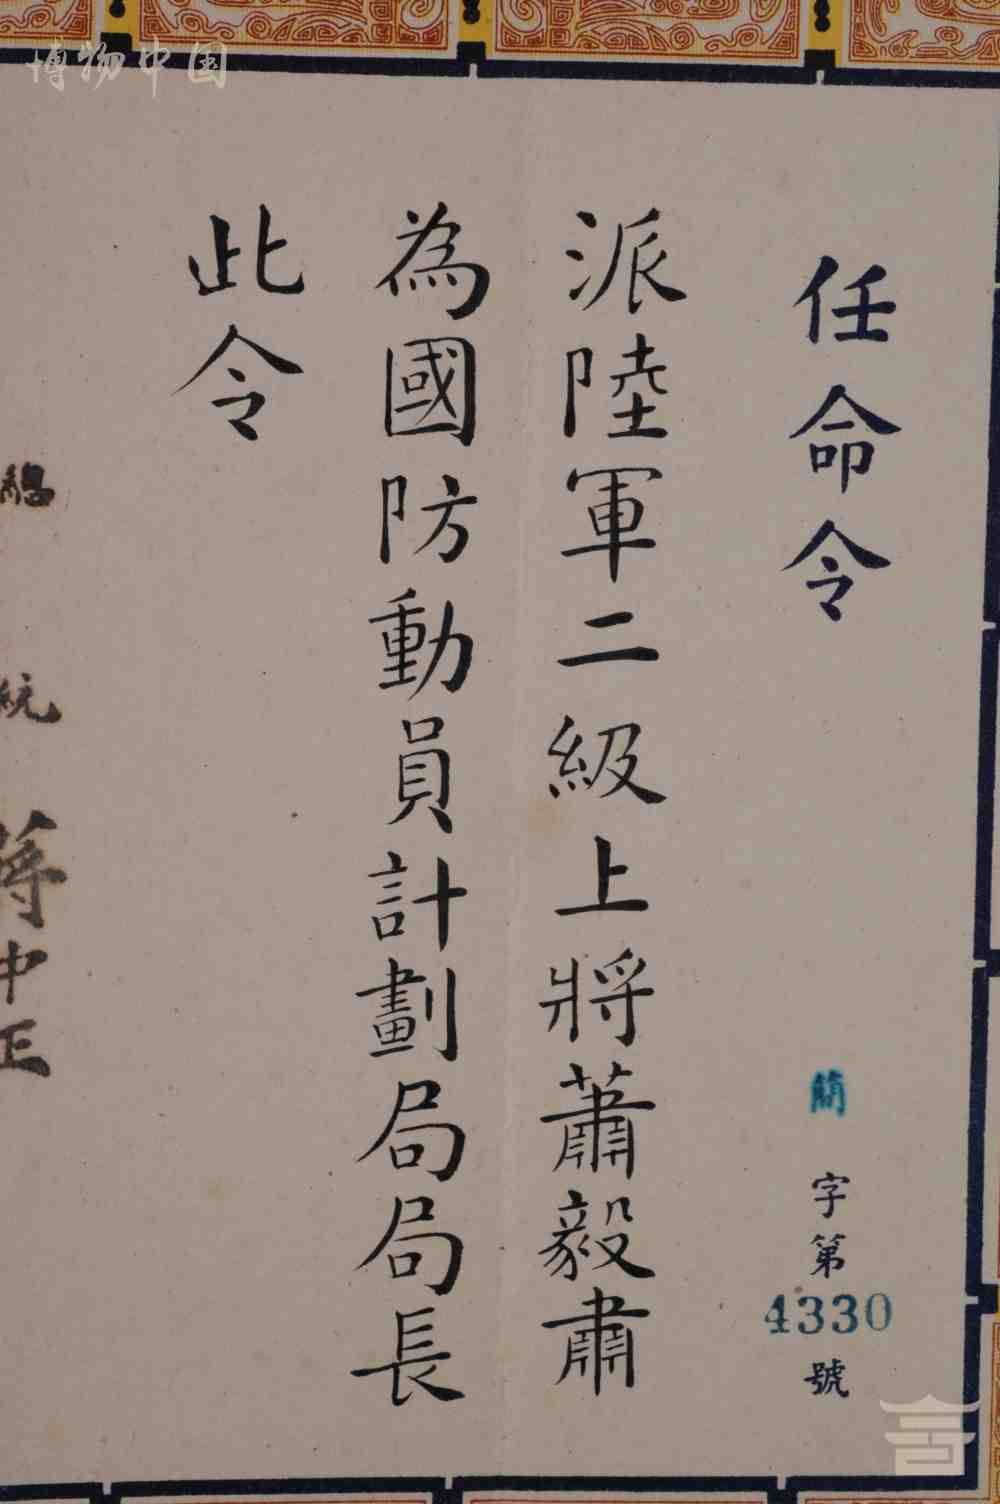 博物中国
任命令
簡字第4330號
派陸軍二級上將蕭毅肅
為國防動員計劃局局長
此令
總統蔣中正